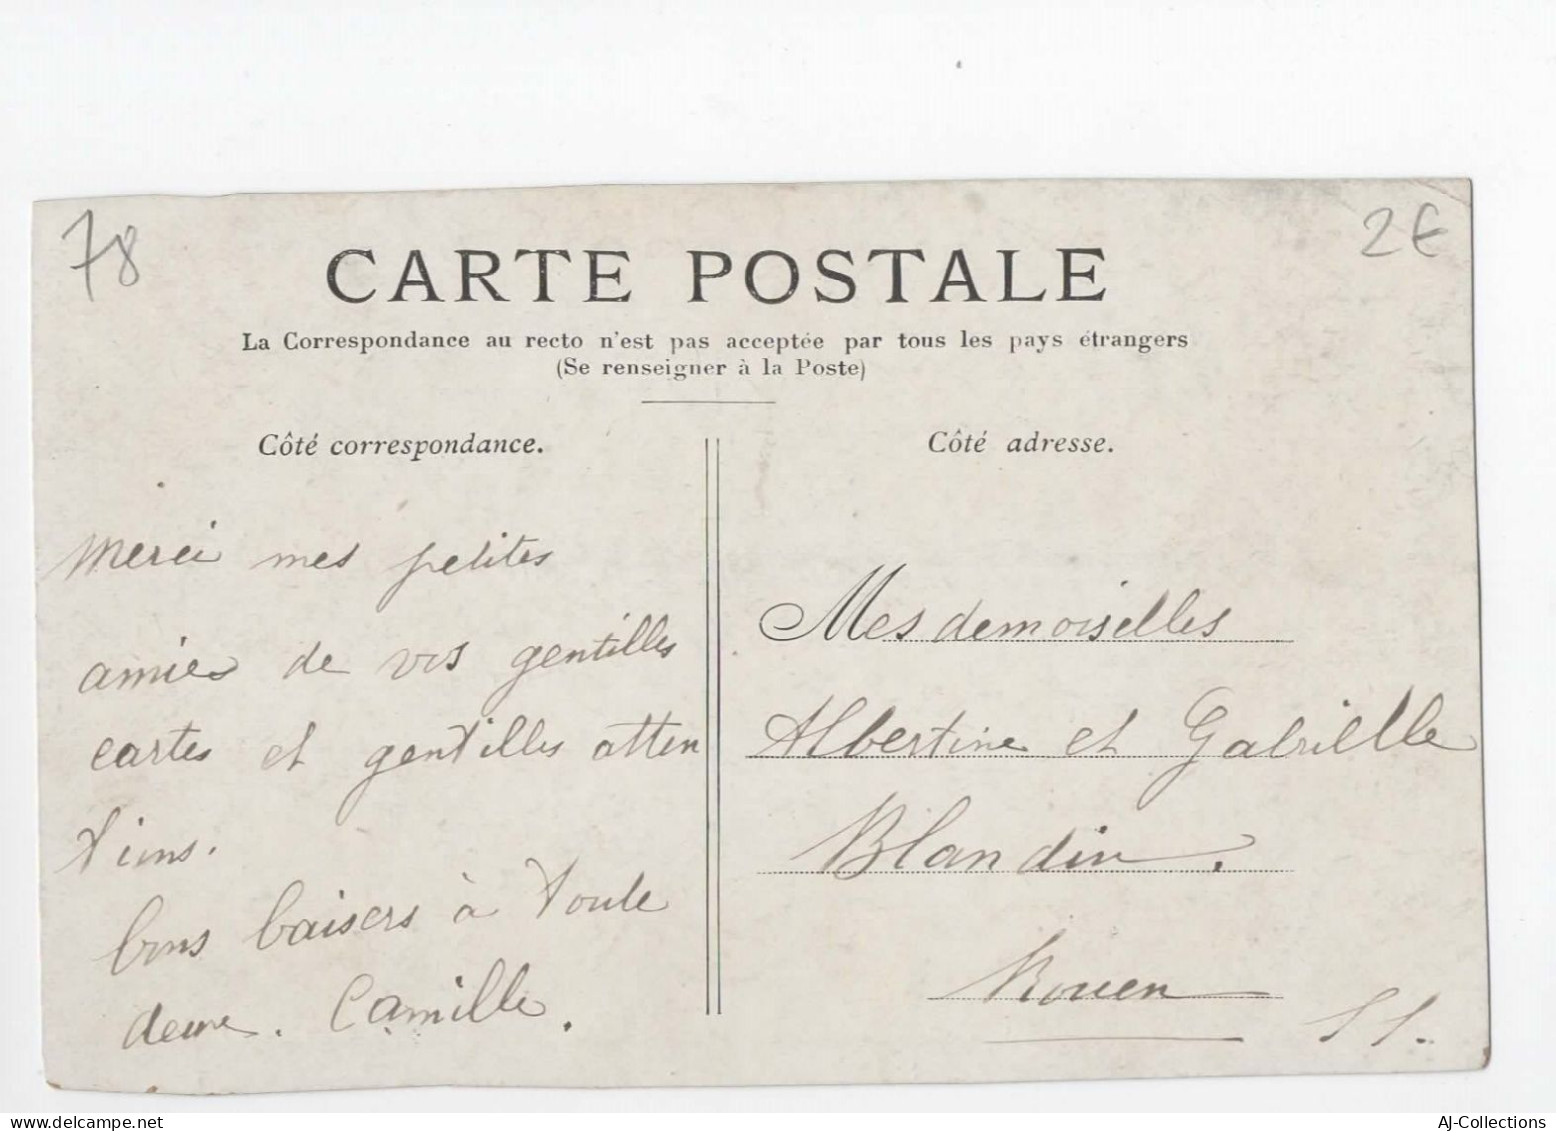 78
2€
CARTE POSTALE
La Correspondance au recto n'est pas acceptée par tous les pays étrangers
(Se renseigner à la Poste)
Côté correspondance.
Merci mes petites
amies de vos gentilles
cartes et gentilles atten
tions.
bons baisers à toute
deux. Camille.
Côté adresse.
Mesdemoiselles
Albertine et Gabrielle
Blandin.
Rouen
AJ-Collections